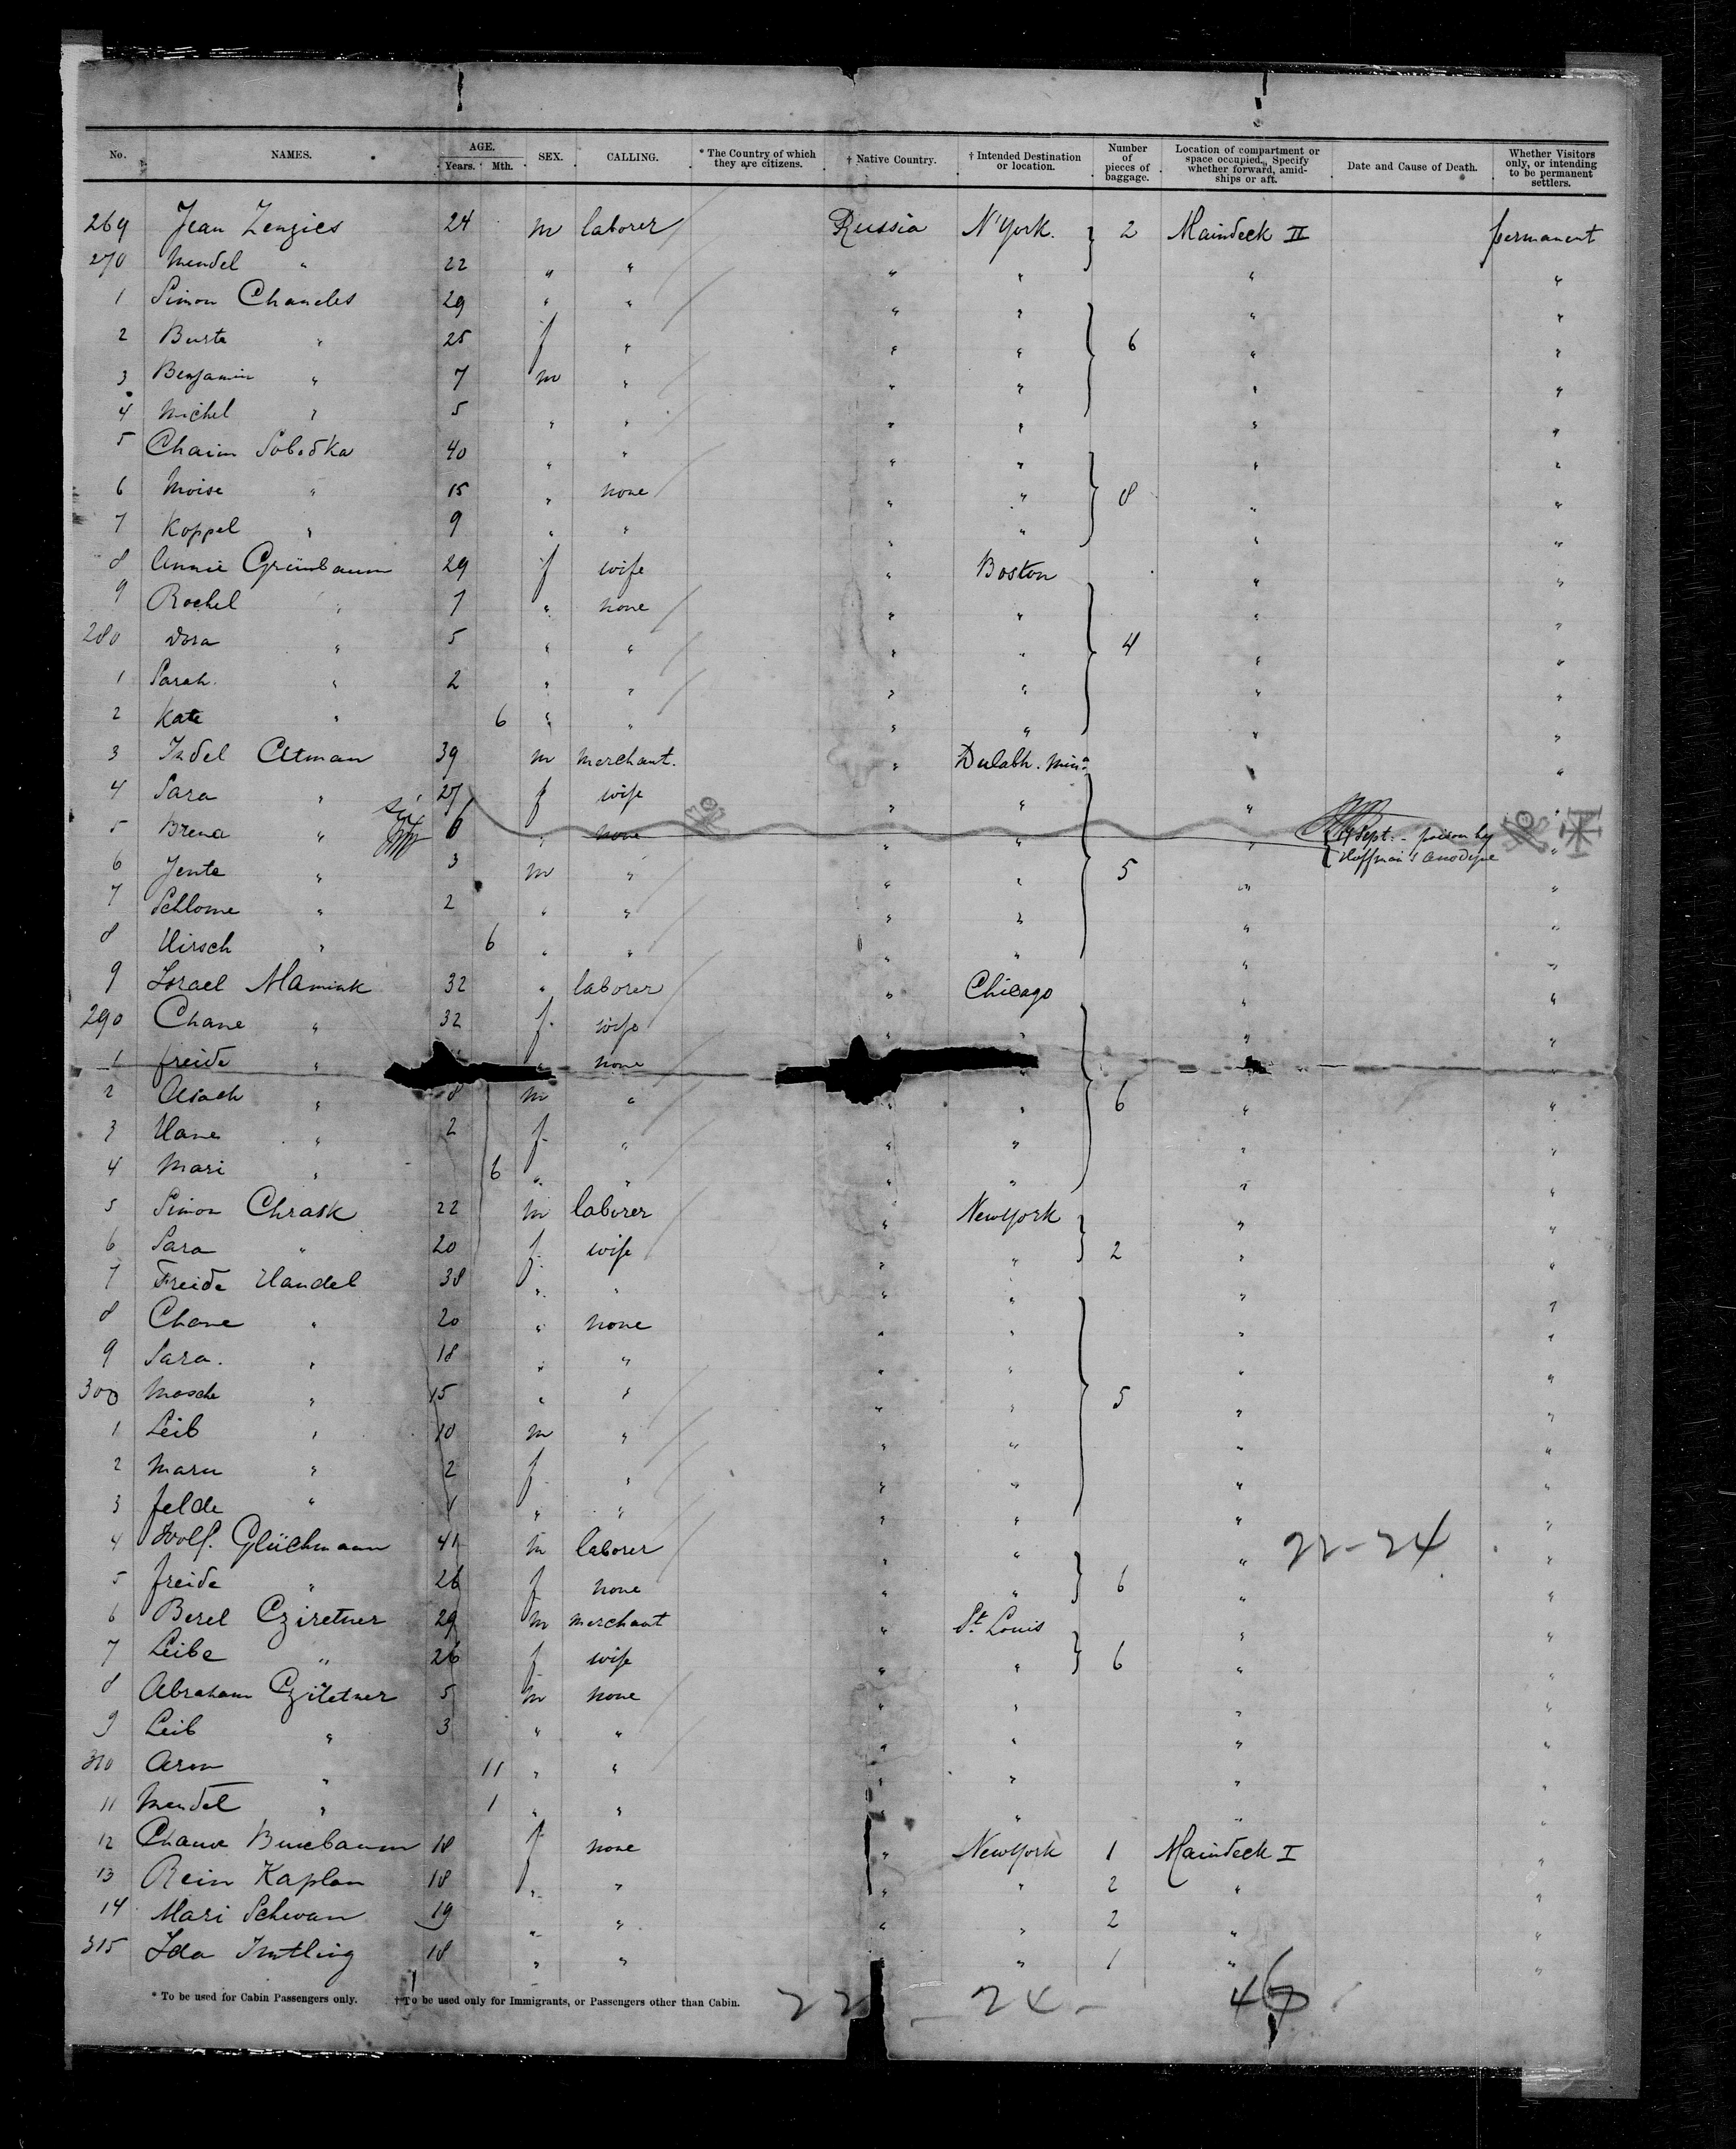 No. NAMES. AGE. Years. Mth. SEX. CALLING. * The Country of which they are citizens. † Native Country. † Intended Destination or location. Number of pieces of baggage. Location of compartment or space occupied. Specify whether forward, amidships or aft. Date and Cause of Death. Whether Visitors only, or intending to be permanent settlers.
269 Jean Zengies 24 m laborer Russia N'York. 2 Maindeck II permanent
270 Mendel " 22 " " " " " "
1 Simon Chancles 29 " " " " " "
2 Busta " 25 f " " " 6 " "
3 Benjamin " 7 m " " " " "
4 Michel " 5 " " " " " "
5 Chaim Sobodka 40 " " " " " "
6 Moise " 15 " none " " 8 " "
7 Koppel " 9 " " " " " "
8 Annie Grünbaum 29 f wife " Boston " "
9 Rochel " 7 " none " " " "
280 Dora " 5 " " " " 4 " "
1 Sarah " 2 " " " " " "
2 Kate " 6 " " " " " "
3 Judel Altman 39 m merchant. " Dulabh. Min. " "
4 Sara " 27 f wife " " " "
5 Brena " six 6 " none " " " 4 Sept. - poison by Hoffman's anodyne "
6 Jente " 3 m " " " 5 " "
7 Schlome " 2 " " " " " "
8 Hirsch " 6 " " " " " "
9 Israel Mamink 32 " laborer " Chicago " "
290 Chane " 32 f. wife " " " "
1 freide " " none " "
2 Asach " 8 m " " " 6 " "
3 Hane " 2 f. " " " " "
4 Mari " 6 " " " " " "
5 Simon Chrask 22 m laborer " New York " "
6 Sara " 20 f. wife " " 2 " "
7 Freide Handel 38 " " " " " "
8 Chane " 20 " none " " " "
9 Sara. " 18 " " " " " "
300 Mosche " 15 " " " " 5 " "
1 Leib " 10 m " " " " "
2 Maru " 2 f " " " " "
3 felde " " " " " " "
4 Wolf. Glückmann 41 m laborer " " " 22-24 "
5 freide " 26 f none " " 6 " "
6 Berel Cziretner 29 m merchant " St. Louis " "
7 Leibe " 26 f wife " " 6 " "
8 Abraham Cziletner 5 m none " " " "
9 Leib " 3 " " " " " "
310 Aron " 11 " " " " " "
11 Mendel " 1 " " " " " "
12 Chane Buxbaum 18 f none " New York 1 Maindeck I "
13 Rein Kaplan 18 " " " " 2 " "
14 Mari Schwan 19 " " " " 2 " "
315 Ida 18 " " " " 1 " "
* To be used for Cabin Passengers only. † To be used only for Immigrants, or Passengers other than Cabin. 22 - 24 -